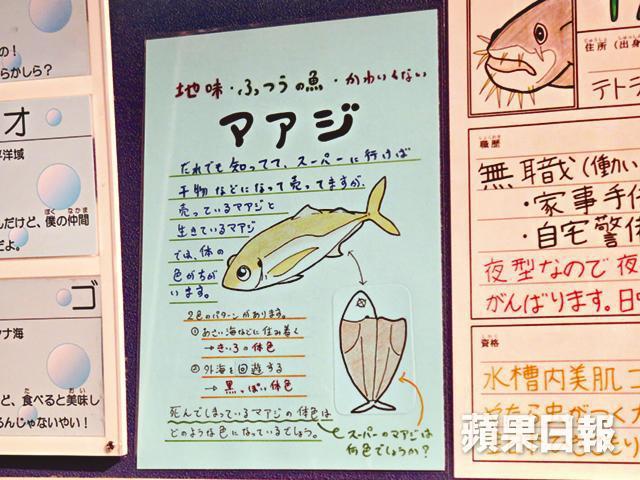 の！
らかしら？
オ
平洋域
んだけど、僕の仲間
ぼく なかま
だよ。
ゴ
ナナ海
ど、食べると美味し
た おい
るんじゃないやい！
地味・ふつうの魚・かわいくない
マアジ
だれでも知ってて、スーパーに行けば
干物などになって売ってますが、
売っているマアジと
生きているマアジ
では、体の
色がちが
います。
2色のパターンがあります。
①あさい海などに住み着く
→きいろの体色
②外海を回遊する
→黒っぽい体色
死んでしまっているマアジの体色は
どのような色になっているでしょう。
スーパーのマアジは
何色でしょうか？
じゅうしょ しゅっしん
住所（出身
テトラ
しょくれき
職歴
無職（働い
・家事手伝
・自宅警備
夜型なので夜
がんばります。日中
しかく
資格
水槽内美肌コ
やたら虫がつく
蘋果日報